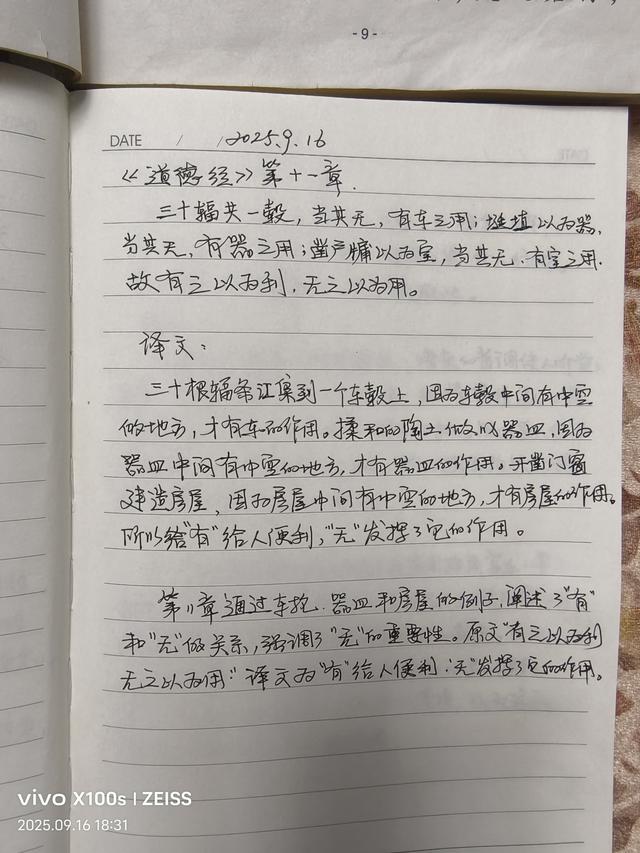 -9-
DATE / / 2025.9.16
《道德经》第十一章.
三十辐共一毂，当其无，有车之用；埏埴以为器，
当其无，有器之用；凿户牖以为室，当其无.有室之用.
故有之以为利，无之以为用。
译文：
三十根辐条汇集到一个车毂上，因为车毂中间有中空
的地方，才有车的作用。揉和的陶土做以器皿，因为
器皿中间有中空的地方，才有器皿的作用。开凿门窗
建造房屋，因为房屋中间有中空的地方，才有房屋的作用。
所以给"有"给人便利，"无"发挥了它的作用。
第11章通过车，器皿和房屋的例子，阐述了"有"
和"无"的关系，强调了"无"的重要性。原文"有之以为利
无之以为用"译文为"有"给人便利，"无"发挥了它的作用。
vivo X100s | ZEISS
2025.09.16 18:31